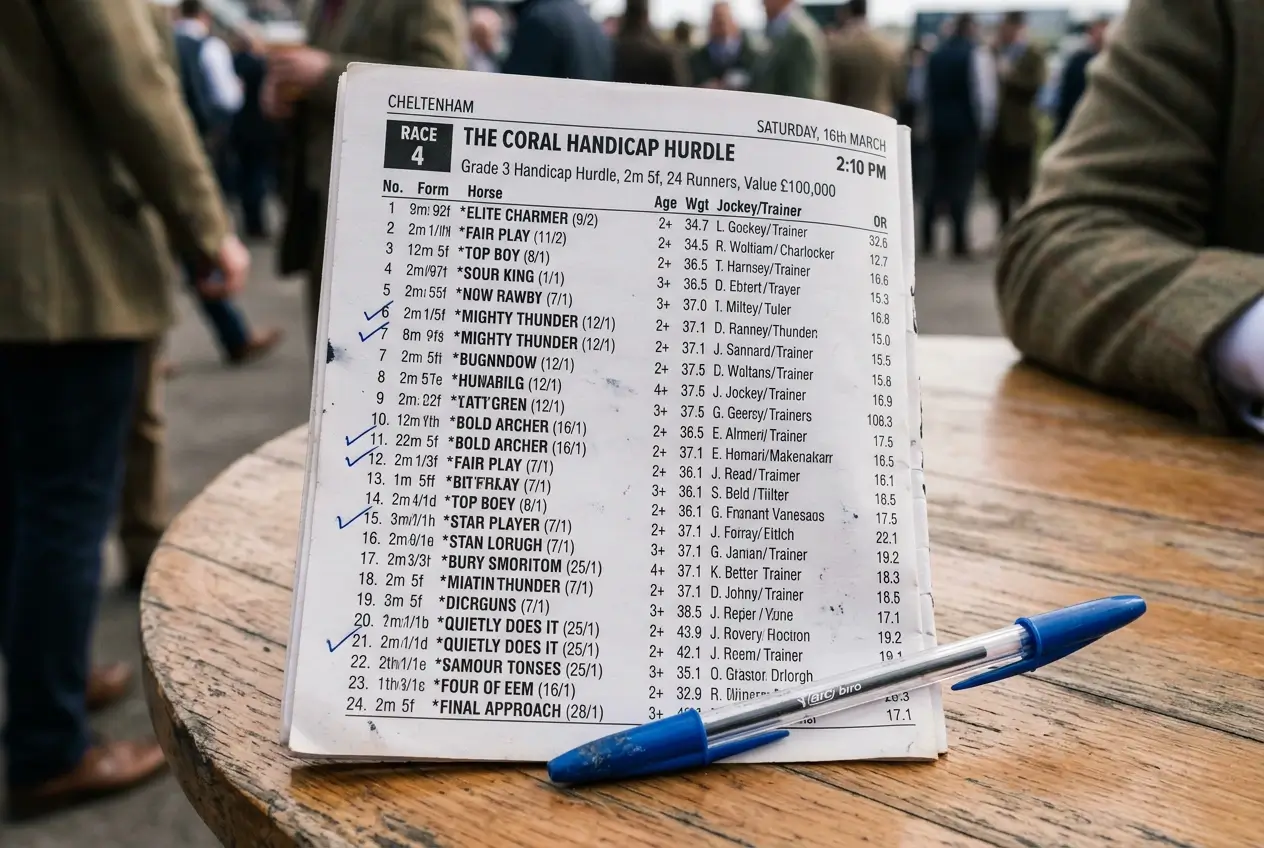 CHELTENHAM SATURDAY, 16th MARCH
RACE 4 THE CORAL HANDICAP HURDLE 2:10 PM
Grade 3 Handicap Hurdle, 2m 5f, 24 Runners, Value £100,000
No. Form Horse Age Wgt Jockey/Trainer OR
1 9m: 92f *ELITE CHARMER (9/2) 2+ 34.7 L. Gockey/Trainer 32.6
2 2m *FAIR PLAY (11/2) 2+ 34.5 R. Woltiam/Charlocker 12.7
3 12m 5f *TOP BOY (8/1) 2+ 36.5 T. Harnsey/Trainer 16.6
4 2m/97t *SOUR KING (1/1) 3+ 36.5 D. Ebtert/Trayer 15.3
5 2m:55f *NOW RAWBY (7/1) 3+ 37.0 T. Miltey/Tuler 16.8
6 2m1/5f *MIGHTY THUNDER (12/1) 2+ 37.1 D. Ranney/Thunden 15.0
7 8m *MIGHTY THUNDER (12/1) 2+ 37.1 J. Sannard/Trainer 15.5
7 2m 5ft *BUGNNDOW (12/1) 2+ 37.5 D. Woltans/Trainer 15.8
8 2m 57e *HUNARILG (12/1) 4+ 37.5 J. Jockey/Trainer 16.9
9 2m: 22f *TATT'GREN (12/1) 3+ 37.5 G. Geersy/Trainers 108.3
10. *BOLD ARCHER (16/1) 2+ 36.5 E. Almeri/Trainer 17.5
11. 22m 5f *BOLD ARCHER (16/1) 2+ 37.1 E. Homari/Makenakarr 16.5
12. 2m1/3f *FAIR PLAY (7/1) 2+ 36.1 J. Read/Traimer 16.1
13. 1m 5ff (7/1) 3+ 36.1 S. Beld 16.5
14. 2m4/1d *TOP BOEY (8/1) 2+ 36.1 G. Vanesaos 17.5
15. *STAR PLAYER (7/1) 2+ 37.1 J. 22.1
16. *STAN LORUGH (7/1) 3+ 37.1 G. Janian/Trainer 19.2
17. 2m3/3t *BURY SMORITOM (25/1) 4+ 37.1 K. Better Trainer 18.3
18. 2m 5f *MIATIN THUNDER (7/1) 2+ 37.1 D. Johny/Trainer 18.5
19. 3m 5f *DICRGUNS (7/1) 3+ 38.5 J. Reper 17.1
20. *QUIETLY DOES IT (25/1) 2+ 43.9 J. Rovery 19.2
21. 2m/1/1d *QUIETLY DOES IT (25/1) 2+ 42.1 J. Reem/Trainer
22. *SAMOUR TONSES (25/1) 3+ 35.1 O.
23. *FOUR OF EEM (16/1) 2+ 32.9 R.
24. 2m 5f *FINAL APPROACH (28/1) 3+ 17.1
biro